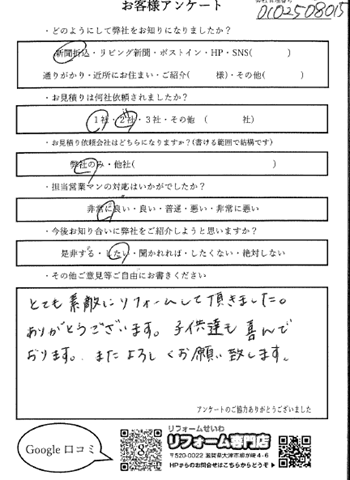 お客様アンケート
0102508015
・どのようにして弊社をお知りになりましたか？
新聞折込・リビング新聞・ポストイン・HP・SNS(　　　)
通りがかり・近所にお住まい・ご紹介(　　　様)・その他(　　　)
・お見積りは何社依頼されましたか？
1社・2社・3社・その他 (　　　社)
・お見積り依頼会社はどちらになりますか？(書ける範囲で結構です)
弊社のみ・他社(　　　)
・担当営業マンの対応はいかがでしたか？
非常に良い・良い・普通・悪い・非常に悪い
・今後お知り合いに弊社をご紹介しようと思いますか？
是非する・したい・聞かれれば・したくない・絶対しない
・その他ご意見等ご自由にお書きください
とても素敵にリフォームして頂きました。
ありがとうございます。子供達も喜んで
おります。またよろしくお願い致します。
アンケートのご協力ありがとうございました
Google 口コミ
リフォームせいわ
リフォーム専門店
〒520-0022 滋賀県大津市柳が崎4-6
HPからのお問合せはこちらからどうぞ